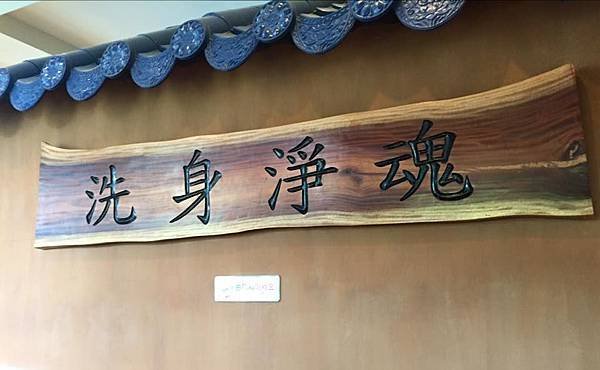 洗身淨魂